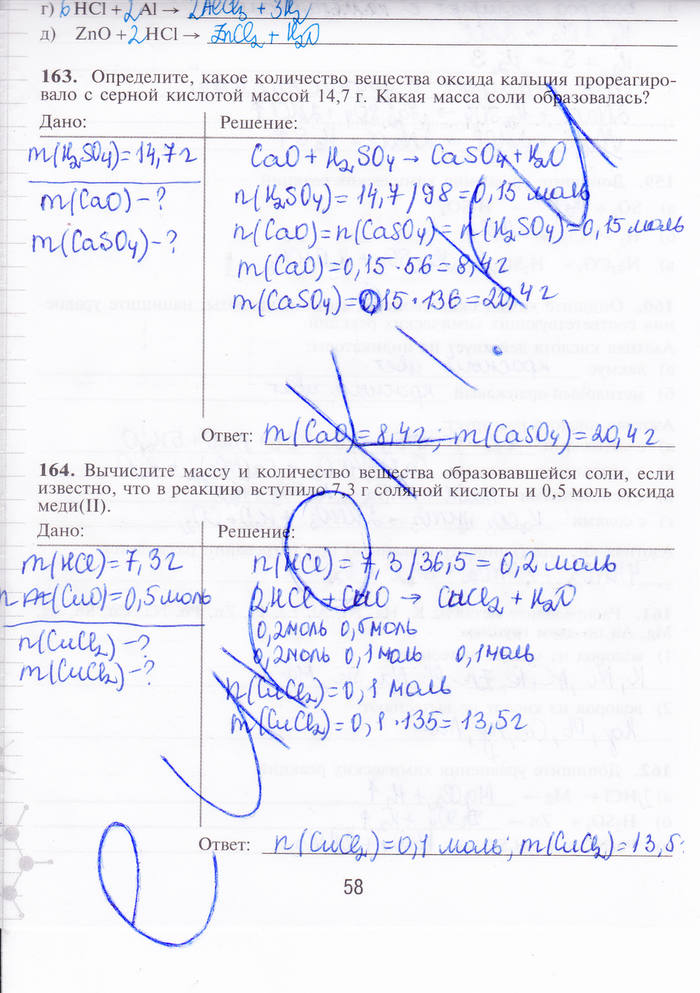 г) 6HCl + 2Al → 2AlCl₃ + 3H₂
д) ZnO + 2HCl → ZnCl₂ + H₂O
163. Определите, какое количество вещества оксида кальция прореагиро-
вало с серной кислотой массой 14,7 г. Какая масса соли образовалась?
Дано:
Решение:
m(H₂SO₄)=14,7г
m(CaO)-?
m(CaSO₄)-?
CaO + H₂SO₄ → CaSO₄ + H₂O
n(H₂SO₄) = 14,7/98 = 0,15 моль
n(CaO)=n(CaSO₄)=n(H₂SO₄)=0,15 моль
m(CaO)=0,15·56=8,4г
m(CaSO₄)=0,15·136=20,4г
Ответ: m(CaO)=8,4г; m(CaSO₄)=20,4г
164. Вычислите массу и количество вещества образовавшейся соли, если
известно, что в реакцию вступило 7,3 г соляной кислоты и 0,5 моль оксида
меди(II).
Дано:
Решение:
m(HCl)=7,3г
n(CuO)=0,5моль
n(CuCl₂)-?
m(CuCl₂)-?
n(HCl)=7,3/36,5=0,2 моль
2HCl + CuO → CuCl₂ + H₂O
0,2моль 0,5моль
0,2моль 0,1моль 0,1моль
n(CuCl₂)=0,1моль
m(CuCl₂)=0,1·135=13,5г
Ответ: n(CuCl₂)=0,1 моль; m(CuCl₂)=13,5г
58